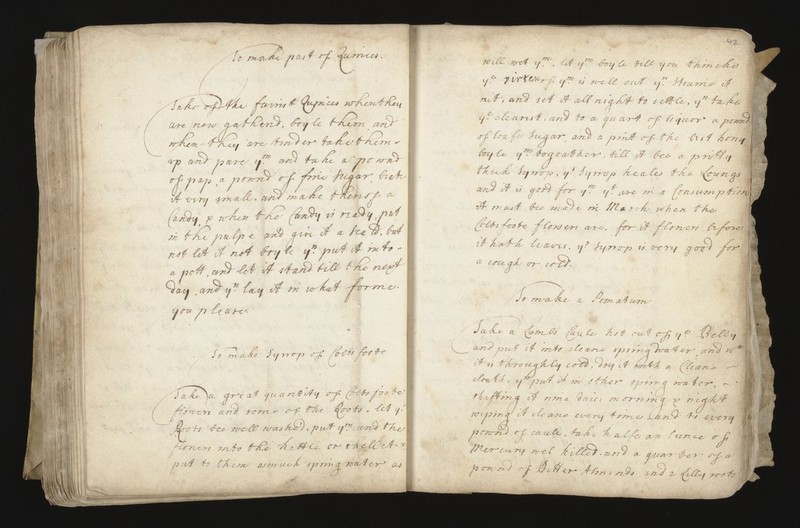 To make past of Quinces.
Take of the fairest Quinces when they
are new gathered, boyle them and
when they are tender take them
up and pare ym and take a pownd
of pap, a pownd of fine sugar, bete
it very small, and make thereof a
Candy, & when the Candy is ready, put
in the pulpe and give it a heate, but
not let it not boyle yn put it into
a pott, and let it stand till the next
day, and yn lay it in what forme
you please.
To make Syrop of Colts foote
Take a great quantity of Colts foote
flowers and some of the Roots. let ye
Roots bee well washed. put ym and the
flowers into the kettle or skellet &
put to them asmuch spring water as
42
will wet ym. let ym boyle till you thinke
ye of ym is well out yn straine it
out, and set it all night to settle, yn take
ye clearest, and to a quart of liquor a pownd
of loafe sugar, and a pint of the best hony
boyle ym togeather, till it bee a pretty
thick syrop, ys syrop heales the Loungs
and it is good for ym yt are in a Consumption
it must bee made in March when the
Coltsfoote flowers are, for it flowers before
it hath leaves. ys syrop is very good for
a cough or cold.
To make a Pomatum
Take a Lambs Caule hot out of ye Belly
and put it into cleane spring water, and wn
it is throughly cold, dry it with a Cleane
cloath, yn put it in other spring water,
shifting it nine daies morning & night
wiping it cleane every time, and to every
pownd of caule, take halfe an ounce of
Mercury wel killed, and a quarter of a
pownd of Bitter Almonds and 2 Lilly roots